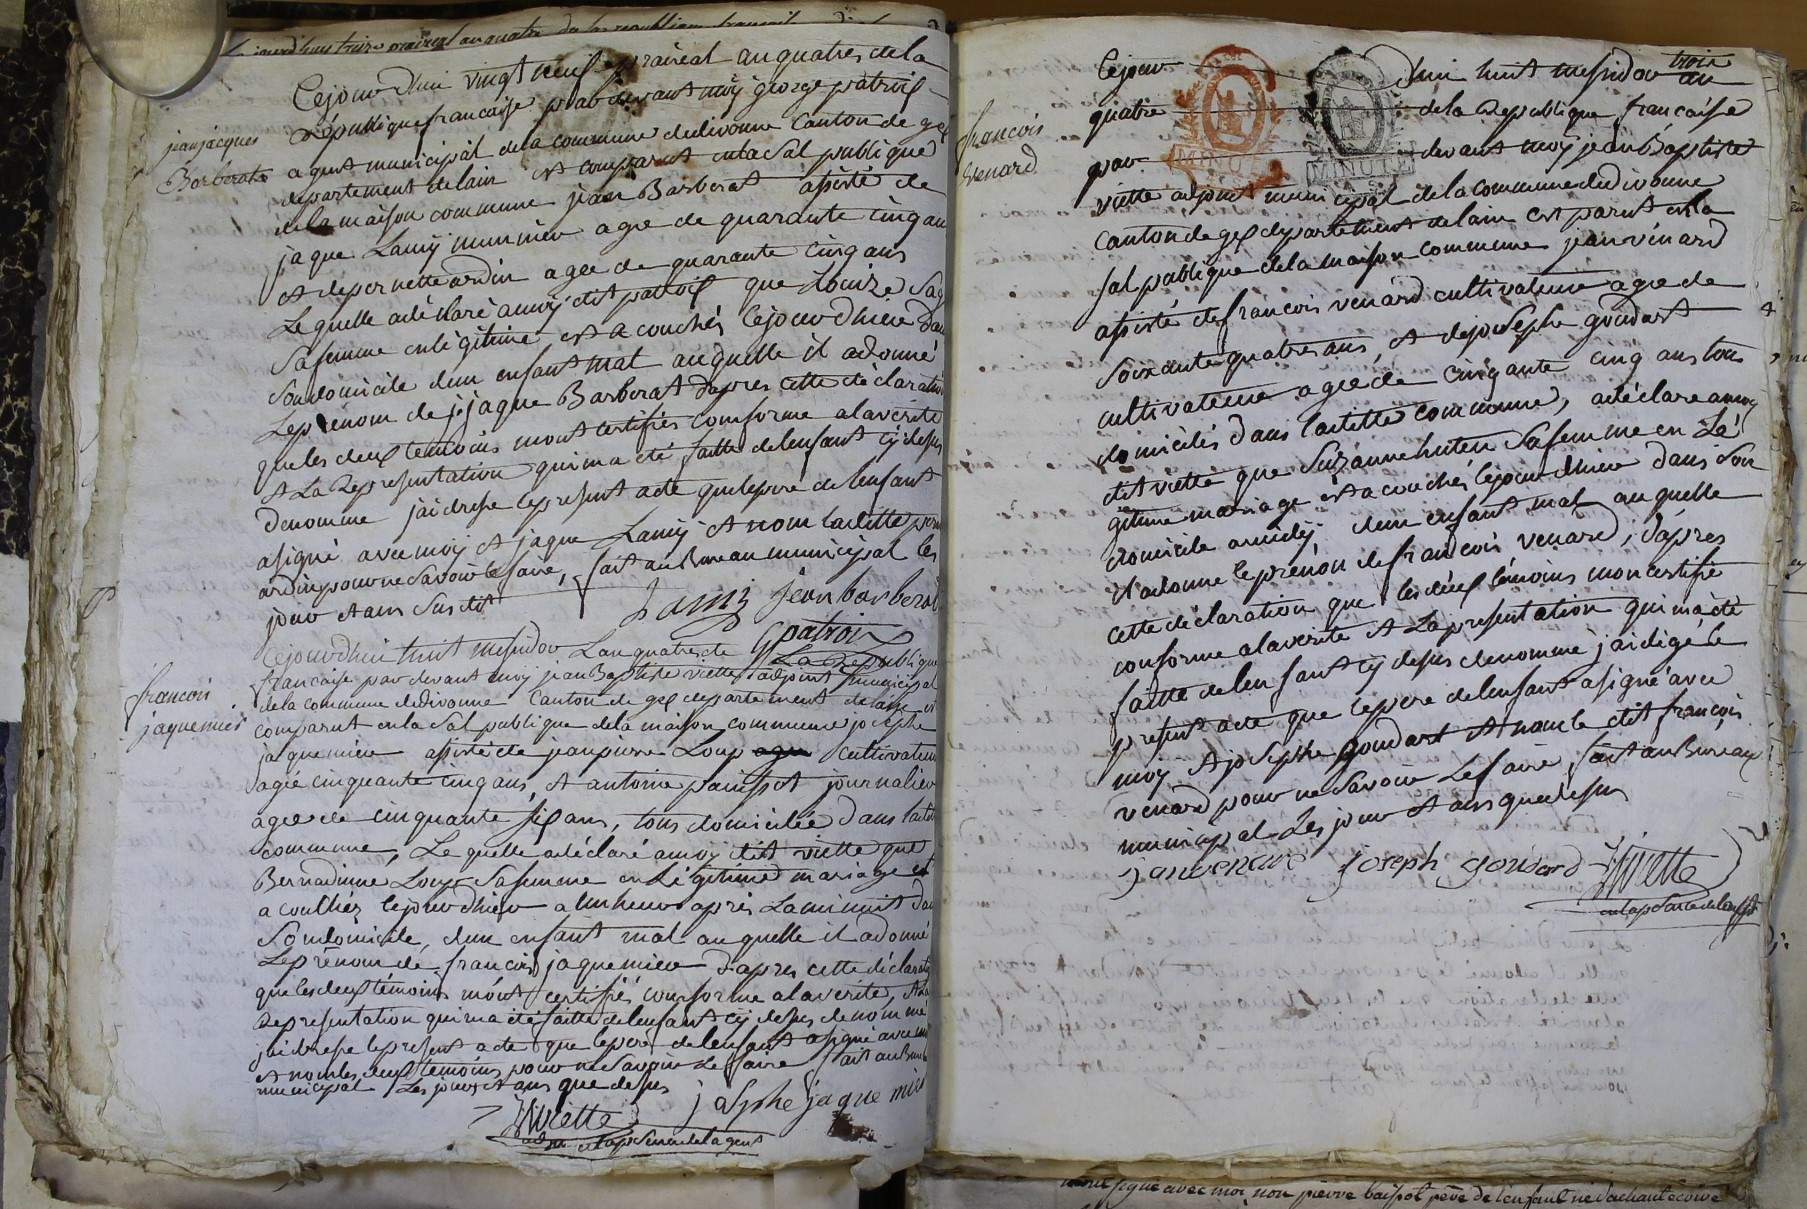 Cejourdhui vingt neuf prairéal an quatres de la
République francaise par devant moÿ george patroix
jean jacques
Barberat
agent municipal de la commune dedivonne Canton de gex
departement delain est comparut enla Sal publique
de la maison commune jean Barberat asisté de
jaque Lamÿ munnier agé de quarante cinq ans
et de pernette ardin agée de quarante cinq ans
Le quelle adéclaré amoÿ dit patroix que Louize
Sa femme en légitime est acouchés Cejourdhier dans
Son domicile dun enfant mal auquelle il adonné
Le prénom de j: jaque Barberat dapres cette déclaration
que les deux temoins mont certifiés comforme ala verité
et La Representation quima été faitte de lenfant cÿ desus
denomme jai dresse le present acte que le pere de lenfant
asigné avec moÿ et jaque Lamÿ et nom laditte pernette
ardin pour ne Savoir le faire, fait au Bureau municipal les
jour et ans Susdit
Lamy jean barberat
G patroix
Cejourdhui huit mesidor Lan quatres de La Republique
francaise par devant moÿ jean Baptiste viette adjoint municipal
francois
jaquemier
de la commune dedivonne Canton de gex departement delain est
comparut en la Sal publique de la maison commune josephe
jaquemier asisté de jean pierre Loup cultivateur
agée cinquante cinq ans, et antoine painssot journalier
agée de cinquante six ans, tous domiciliée dans laditte
commune, Le quelle adéclaré amoÿ dit viette que
Bernadinne Loup Sa femme en Légitime mariage est
acouchés lejourdhier a une heure après La minuit dans
Son domicile, dun enfant mal auquelle il adonné
Le prénom de francois jaquemier dapres cette déclaration
que les deux témoins mont certifiés comforme ala verité, et la
Representation quima été faitte de lenfant cÿ desus denommé
jai dresse le present acte que le pere de lenfant asigné avec moÿ
et nom les deux témoins pour ne Savoir Le faire fait au Bureau
municipal Les jour et ans que desus
JBViette josphe jaque mier
en labsence de lagent
Cejour dhui huit mesidor trois an
quatre de la Republique francaise
francois
venard
par devant moÿ jean Baptiste
MINUTE MINUTE
viette adjoint municipal de la commune dedivonne
Canton de gex departement delain est parut en la
Sal publique de la maison commune jean venard
asisté de francois venard cultivateur agée de
Soixante quatres ans, et de josephe goudart
cultivateur agée de cinquante cinq ans tous
domiciliés dans laditte commune, adéclare amoÿ
dit viette que Suzanne huten Sa femme en Lé
gitime mariage est acouchés lejourdhier dans Son
domicile a midÿ dun enfant mal auquelle
il adonne le prénon de francois venard, dápres
cette déclaration que les deux témoins mon certifie
comforme ala verité et La presentation qui ma été
faitte de lenfant cÿ desus denommé jai digé le
present acte que le pere de lenfant asigné avec
moÿ et josephe goudart et nom le dit francois
venard pour ne Savoir Le faire, fait au Bureaux
municipal Les jour et ans que desus
joseph goudard JBViette
en labsence de lagent
pierre père de lenfant